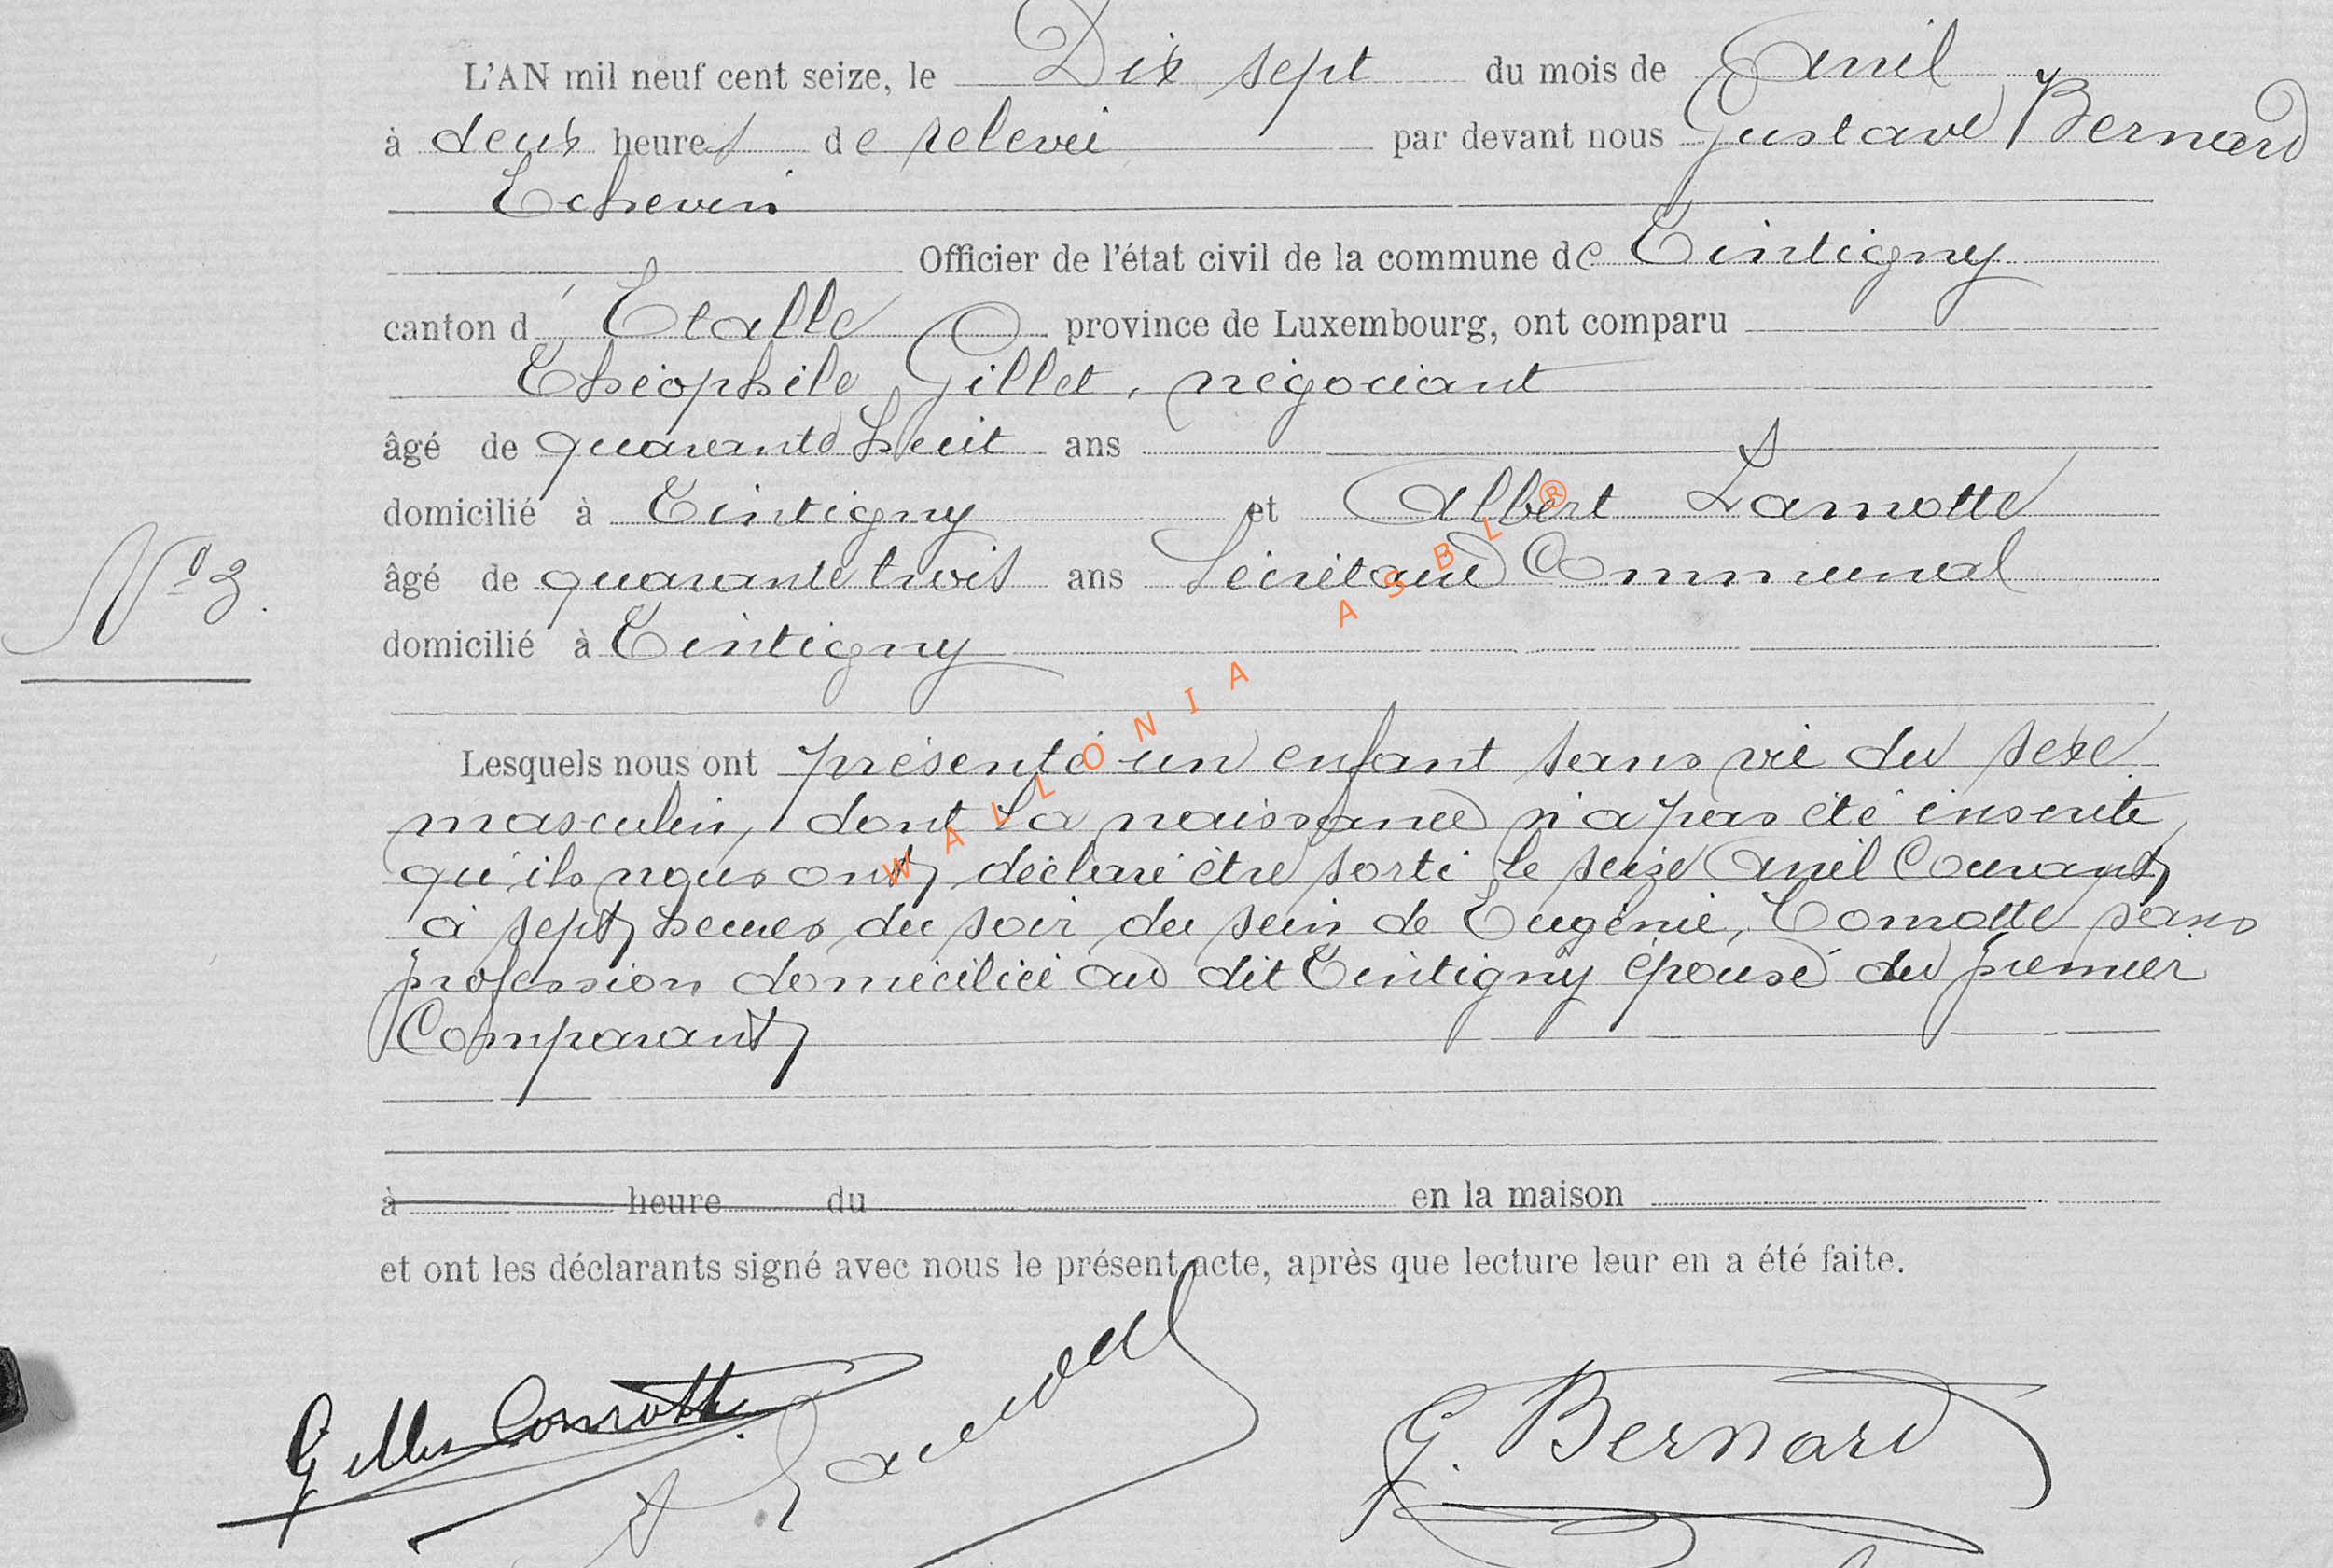 L'AN mil neuf cent seize, le Dix sept du mois de Avril
à deux heures de relevée par devant nous Gustave Bernard
Echevin
Officier de l'état civil de la commune de Tintigny
canton d'Etalle province de Luxembourg, ont comparu
Théophile Gillet, négociant
âgé de quarante huit ans
domicilié à Tintigny et Albert Lamotte
âgé de quarante trois ans Secrétaire Communal
N° 3.
domicilié à Tintigny
WALLONIA ASBL ®
Lesquels nous ont présenté un enfant sans vie du sexe
masculin, dont la naissance n'a pas été inscrite,
qu'ils nous ont déclaré être sorti le seize Avril Courant
à sept heures du soir du sein de Eugénie, Comotte sans
profession domiciliée au dit Tintigny épouse du premier
Comparant
à heure du en la maison
et ont les déclarants signé avec nous le présent acte, après que lecture leur en a été faite.
G. Bernard